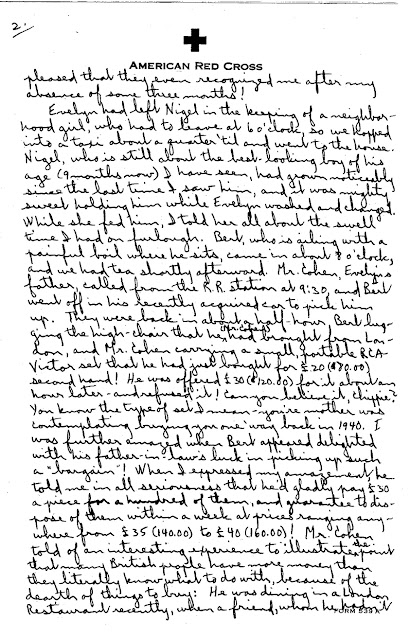 2.
AMERICAN RED CROSS
pleased that they even recognized me after my
absence of some three months!
Evelyn had left Nigel in the keeping of a neighbor-
hood girl, who had to leave at 6 o'clock, so we hopped
into a taxi about a quarter 'til and went to the house.
Nigel, who is still about the best-looking boy of his
age (9 months now) I have seen, had grown noticeably
since the last time I saw him, and it was mighty
sweet holding him while Evelyn washed and changed.
While she fed him, I told her all about the swell
time I had on furlough. Bert, who is ailing with a
painful boil where he sits, came in about 8 o'clock,
and we had tea shortly afterward. Mr. Cohen, Evelyn's
father, called from the R.R. station at 9:30, and Bert
went off in his recently acquired car to pick him
up. They were back in about a half-hour, Bert lug-
ging the high-chair that he, Mr. Cohen, had brought from Lon-
don, and Mr. Cohen carrying a small, portable RCA-
Victor set that he had just bought for £20 ($80.00)
second hand! He was offered £30 ($120.00) for it about an
hour later - and refused it! Can you believe it, Chippie?
You know the type of set I mean - you're mother was
contemplating buying you one way back in 1940. I
was further amazed when Bert appeared delighted
with his father-in-law's luck in picking up such
a "bargain"! When I expressed my amazement, he
told me in all seriousness that he'd gladly pay £30
a piece for a hundred of them, and guarantee to dis-
pose of them within a week at prices ranging any-
where from £35 (140.00) to £40 (160.00)! Mr. Cohen
told of an interesting experience to illustrate the point
that many British people have more money than
they literally know what to do with, because of the
dearth of things to buy: He was dining in a London
Restaurant recently, when a friend, whom he had it
FORM 539A